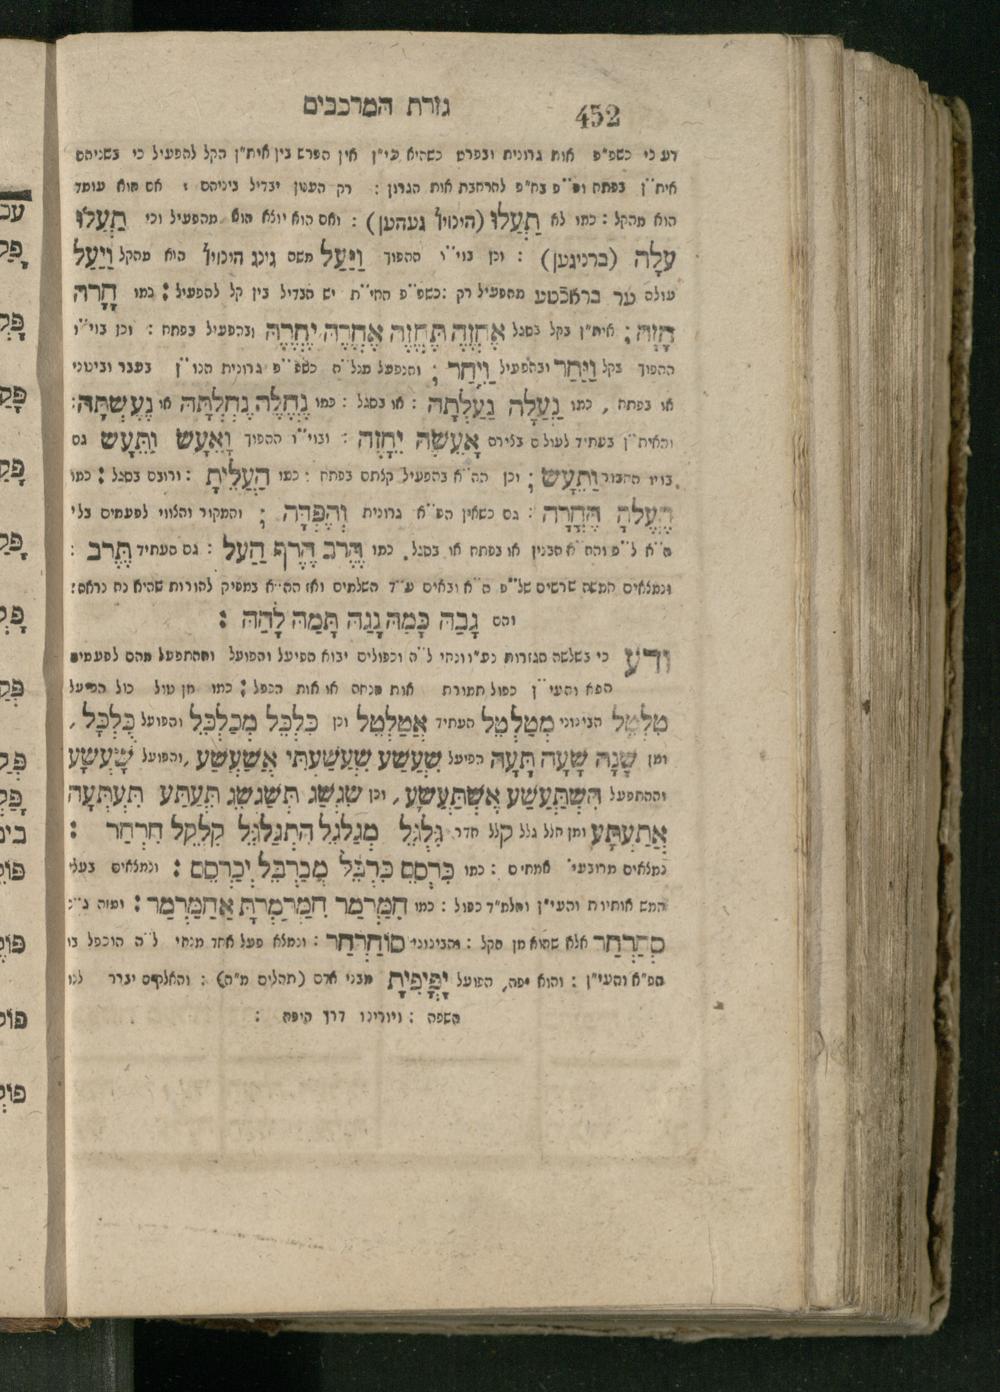 452
גזרת המרכבים
דע כי כשפ״פ אות גרונית ובפרט כשהיא עי״ן אין הפרש בין אית״ן הקל להפעיל כי בשניהם
אית״ן בפתח ופ״פ בח״פ להרחבת אות הגרון : רק הענין יבדיל ביניהם : אם הוא עומד
הוא מהקל : כמו לא תַעֲלוּ (הינויף געהען) : ואם הוא יוצא הוא מהפעיל וכי תַעֲלוּ
עֹלָה (ברינגען) : וכן בוי״ו ההפוך וַיַּעַל משם גינג הינויף הוא מהקל וַיַּעַל
עולה ער בראכטע מהפעיל רק : כשפ״פ החי״ת יש הבדיל בין קל להפעיל : כמו חָרָה
חָזָה ; אית״ן בקל בסגל אֶחֱזֶה תֶּחֱזֶה אֶחֱרֶה יֶחֱרֶה ובהפעיל בפתח : וכן בוי״ו
ההפוך בקל וַיִּחַר ובהפעיל וַיַּחַר ; והנפעל מגל״ה כשפ״פ גרונית הנו״ן בעבר ובינוני
או בפתח , כמו נַעֲלָה נַעֲלָתָה : או בסגל : כמו נֶחֱלָה נֶחֱלְתָה או נֶעֶשְׂתָה :
והאית״ן בעתיד לעולם בצירה אֵעָשֶׂה יֵחָזֶה : ובוי״ו ההפוך וָאֵעָשׂ וַתֵּעָשׂ גם
בויו החבור וְתֵעָשׂ ; וכן הה״א בהפעיל קצתם בפתח : כמו הַעֲלִיתָ : ורובם בסגל : כמו
הֶעֱלָה הֶחֱרָה : גם כשאין הפ״א גרונית וְהֶפְדָּה ; והמקור והצווי לפעמים בלי
ה״א ל״פ והה״א הבנין או בפתח או בסגל . כמו הֶרֶב הֶרֶף הַעַל : גם העתיד תֶּרֶב :
ונמצאים חמשה שרשים של״פ ה״א ובאים ע״ד השלמים ואז הה״א במפיק להורות שהיא נח נראה :
והם גָבַהּ כָּמַהּ נָגַהּ תָּמַהּ לָהַהּ :
ודע כי בשלשה הגזרות נע״ו ונחי ל״ה וכפולים יבוא הפיעל והפועל וההתפעל מהם לפעמים
הפא והעי״ן כפול תמורת אות מנחה או אות הכפל : כמו מן טול כול הפיעל
טִלְטֵל הבינוני מְטַלְטֵל העתיד אֲטַלְטֵל וכן כִּלְכֵּל מְכַלְכֵּל והפועל כֻּלְכָּל ,
ומן שָׁנָה שָׁעָה תָּעָה הפיעל שִׁעֲשַׁע שִׁעֲשַׁעְתִּי אֲשַׁעֲשַׁע , והפועל שָׁעֳשָׁע
וההתפעל הִשְׁתַּעֲשַׁע אֶשְׁתַּעֲשָׁע , וכן שִׂגְשֵׂג תְּשַׂגְשֵׂג תִּעְתַּע תִּעְתָּעָה
אֲתַעְתָּע ומן חלל גלל קלל חדר. גִּלְגֵּל מְגַלְגֵּל הִתְגַּלְגֵּל קִלְקֵל חִרְחַר :
נמצאים מרובעי אמתים : כמו כִּרְסֵם כִּרְבֵּל מְכַרְבֵּל יְכַרְסֵם : ונמצאים בעלי
חמש אותיות והעי״ן והלמ״ד כפול : כמו חֳמַרְמַר חֳמַרְמַרְתָּ אֲחַמַרְמַר : ומזה
סְחַרְחַר אלא שהוא מן הקל : והבינוני סוֹחַרְחַר : ונמצא פעל אחד מנחי ל״ה הוכפל בו
הפ״א והעי״ן : והוא יפה, הפועל יָפְיָפִיתָ מבני אדם (תהלים מ״ה) : והאלקים יברר לנו
השפה : ויורינו דרך היפה :